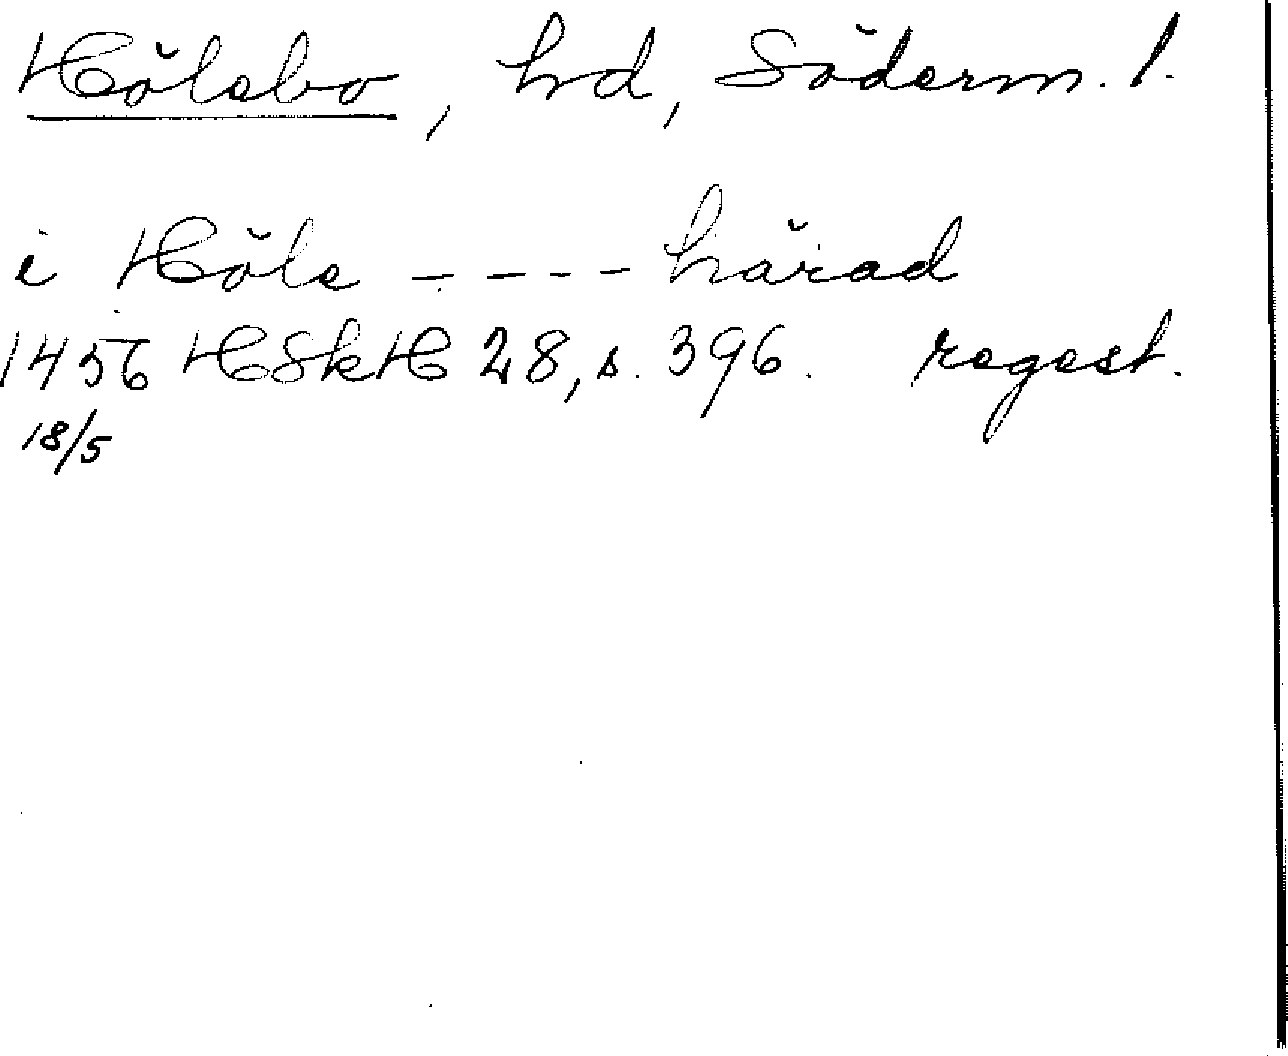 Hölebo, hd, Söderm. l.
i Höle - - - - härad
1456 HSkH 28, s. 396. regest.
18/5